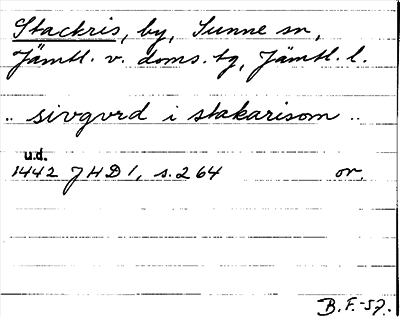 Stackris, by, Sunne sn,
Jämtl. v. doms. tg, Jämtl. l.
.. sivgvrd i stakarisom ..
u.d.
1442 JHD 1, s. 264 or.
B.F.-57.